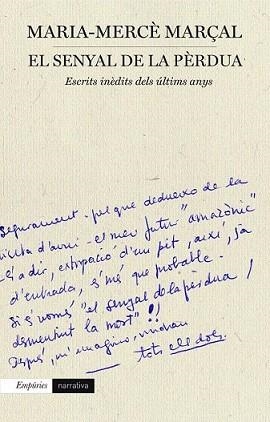 MARIA-MERCÈ MARÇAL
EL SENYAL DE LA PÈRDUA
Escrits inèdits dels últims anys
Segurament - pel que dedueixo de la
visita d'avui - el meu futur "amazònic"
és a dir, extirpació d'un pit, així, ja
d'entrada, és més que probable.
Si és només "el senyal de la pèrdua
desmentint la mort"!!
Després, m'imagino, vindran
tots ells dols.
Empúries
narrativa